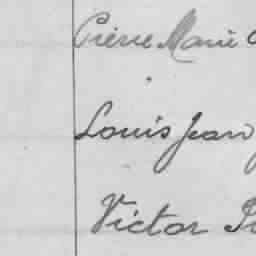 Pierre Marie
Louis Jean
Victor